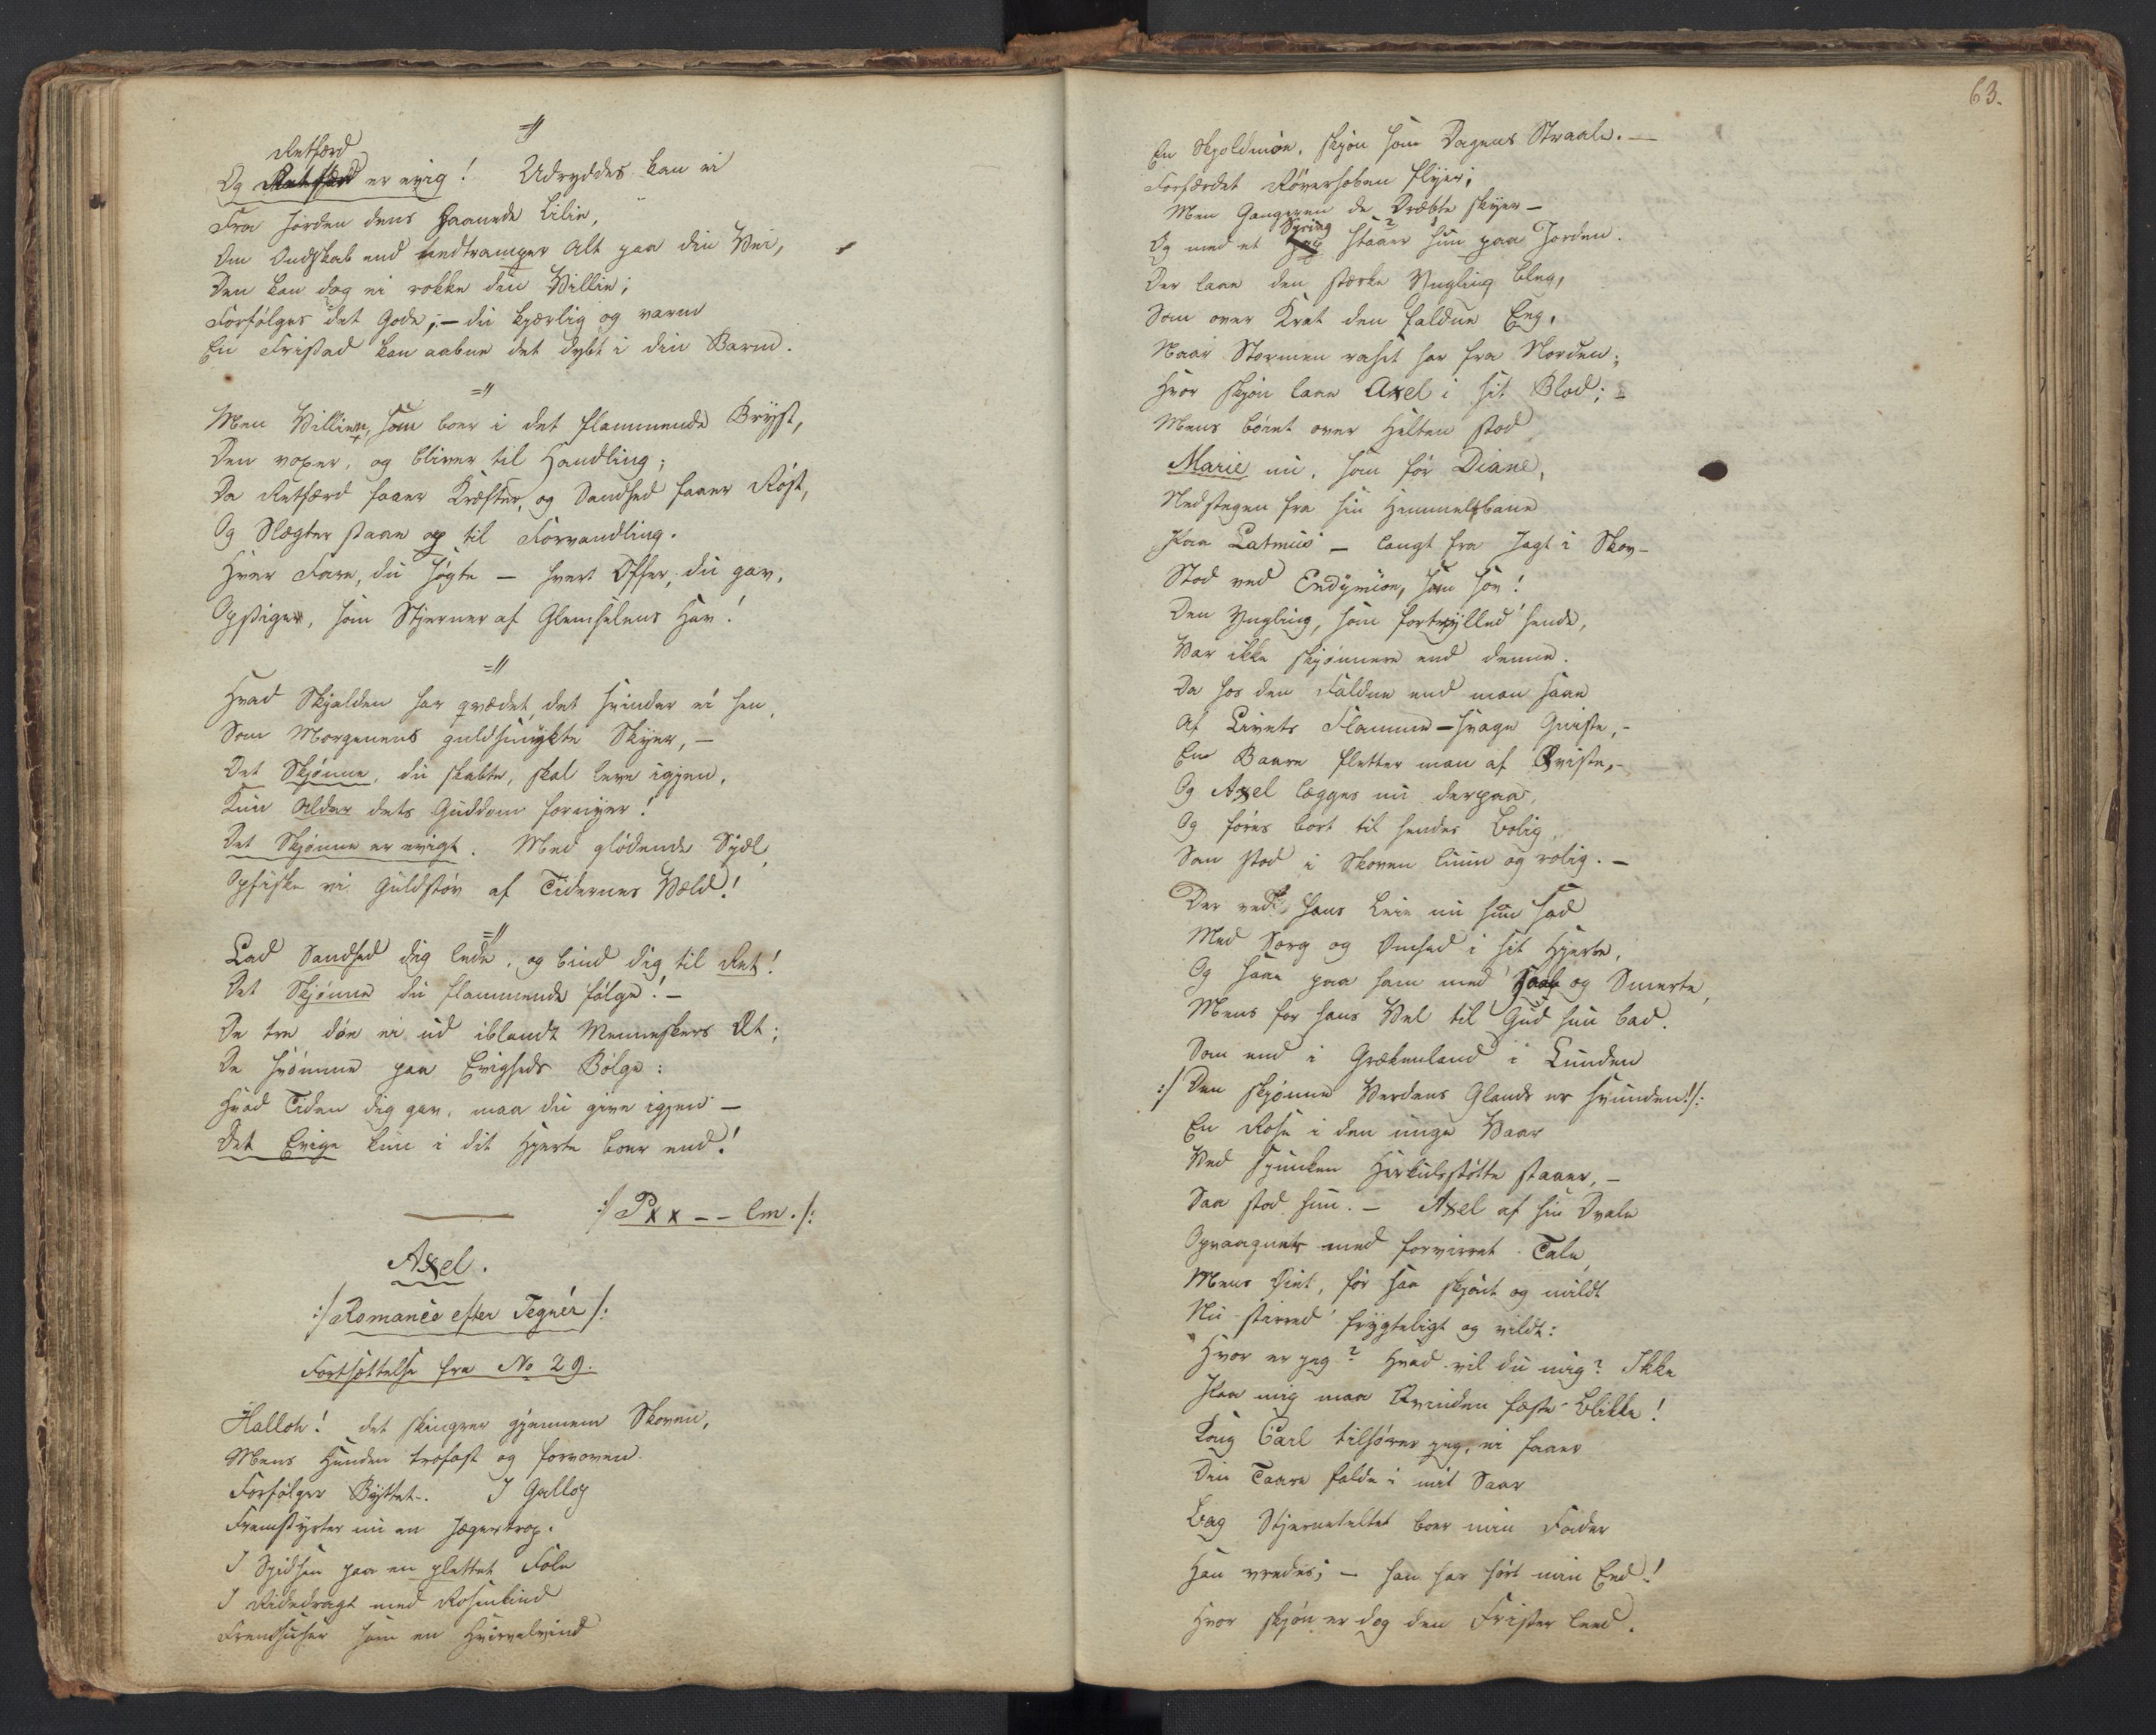 =//
Retfærd
Og Retfærd er evig! Udryddes kan ei
Fra Jorden dens haanede Lilie,
Om Ondskab end nedtramper Alt paa din Vei,
Den kan dog ei rokke din Villie;
Forfølges det Gode; – du kjærlig og varm
En Fristad kan aabne det dybt i din Barm.
=//
Men Villien, som boer i det flammende Bryst,
Den voxer, og bliver til Handling;
Da Retfærd faaer Kræfter, og Sandhed faaer Røst,
Og Slægter staae op til Forvandling.
Hver Fare, du søgte – hvert Offer, du gav,
Opstiger, som Stjerner af Glemselens Hav!
=//
Hvad Skjalden har qvædet, det svinder ei hen,
Som Morgenens guldsmykte Skyer, –
Det Skjønne, du skabte, skal leve igjen,
Kun Alder dets Guddom fornyer!
Det Skjønne er evigt. Med glødende Sjæl,
Opfiske vi Guldstøv af Tidernes Væld!
=//
Lad Sandhed dig lede, og bind dig til Ret!
Det Skjønne du flammende følge! –
De tre døe ei ud iblandt Menneskers Æt;
De svømme paa Evigheds Bølge:
Hvad Tiden dig gav, maa du give igjen –
Det Evige kun i dit Hjerte boer end!
:/ Pxx – – lm. /:
Axel.
:/ Romance efter Tegnér /:
Fortsættelse fra No 29.
Halloh! det skingrer gjennem Skoven,
Mens Hunden trofast og forvoven
Forfølger Byttet. I Gallop
Fremstyrter nu en Jægertrop.
I Spidsen paa en plettet Fole
I Ridedragt med Rosenkind
Fremsuser som en Hvirvelvind
63.
En Skjoldmøe, skjøn som Dagens Straale. –
Forfærdet Røverhoben flyer;
Men Gangeren de Dræbte skyer –
Spring
Og med et staaer hun paa Jorden.
Der laae den stærke Yngling bleg,
Som over Krat den faldne Eeg,
Naar Stormen raset har fra Norden;
Hvor skjøn laae Axel i sit Blod; –
Mens bøiet over Helten stod
Marie nu, som før Diane,
Nedstegen fra sin Himmelbane
Paa Latmus – langt fra Jagt i Skov –
Stod ved Endymion, som sov!
Den Yngling, som fortrylled' hende,
Var ikke skjønnere end denne.
Da hos den Faldne end man saae
Af Livets Flamme – svage Gniste, –
En Baare fletter man af Qviste, –
Og Axel lægges nu derpaa,
Og føres bort til hendes Bolig,
Som stod i Skoven luun og rolig. –
Der ved hans Leie nu hun sad
Med Sorg og Ømhed i sit Hjerte,
Og saae paa ham med Haab og Smerte,
Mens for hans Vel til Gud hun bad.
Som end i Grækenland i Lunden
:/ Den skjønne Verdens Glands er svunden! /:
En Rose i den unge Vaar
Ved sjunken Herkulsstøtte staaer, –
Saa stod hun. – Axel af sin Dvale
Opvaagnet med forvirret Tale,
Mens Øiet, før saa skjønt og mildt
Nu stirred' frygteligt og vildt:
"Hvor er jeg? Hvad vil du mig? Ikke
Paa mig maa Qvinden fæste Blikke!
Kong Carl tilhører jeg, ei faaer
Din Taare falde i mit Saar
Bag Stjerneteltet boer min Fader
Han vredes; – han har hørt min Eed!
Hvor skjøn er dog den Frister leed,